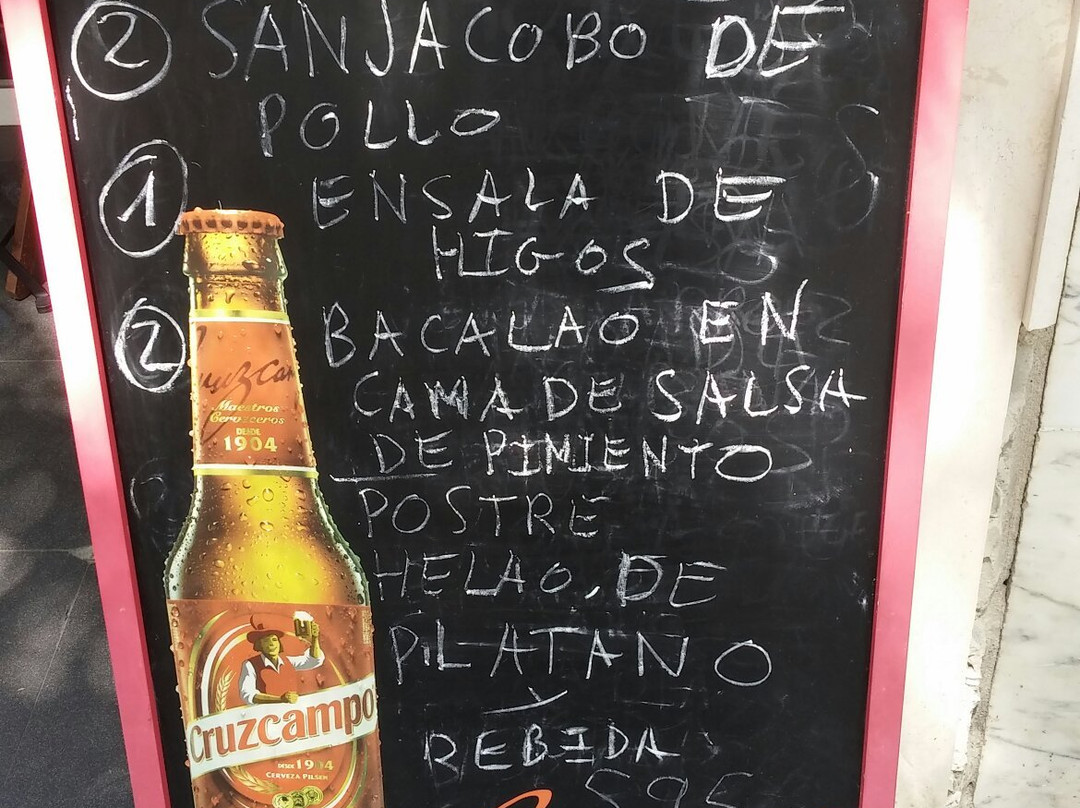 2 SANJACOBO DE
POLLO
1 ENSALA DE
HIGOS
2 BACALAO EN
CAMA DE SALSA
DE PIMIENTO
POSTRE
HELAO. DE
PILATANO
Y
BEBIDA
595
Cruzcampo
Maestros
Cerveceros
DESDE
1904
Cruzcampo
DESDE 1904
CERVEZA PILSEN